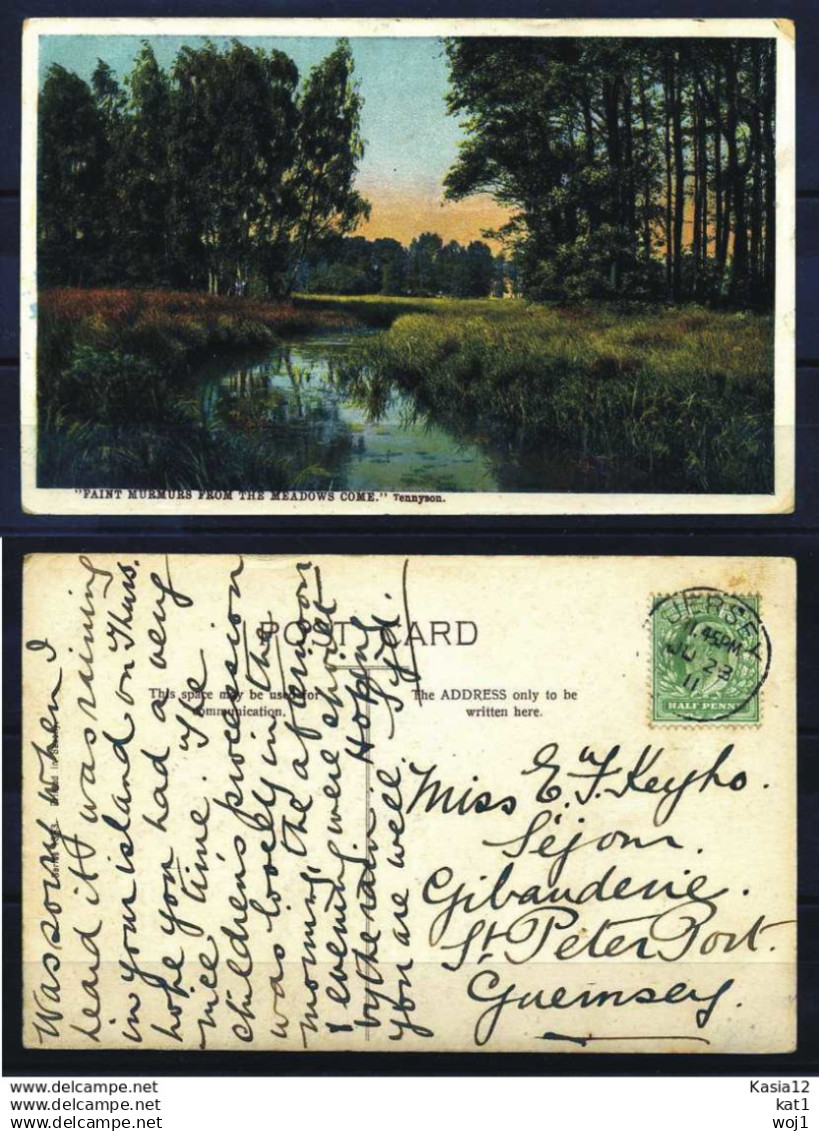 "FAINT MURMURS FROM THE MEADOWS COME." Tennyson.
POST CARD
This space may be used for
communication.
The ADDRESS only to be
written here.
HALF PENNY
JERSEY
1.45PM
JU 23
11
Miss E. F. Keyho.
Séjour.
Gibauderie.
St Peter Port.
Guernsey.
Was sorry when I
heard it was raining
in your island on Thurs.
hope you had a very
nice time. The
children's procession
was lovely in the
morning, the afternoon
& evening were spoilt
by the rain. Hoping
you are well.
Kasia12
kat1
woj1
www.delcampe.net